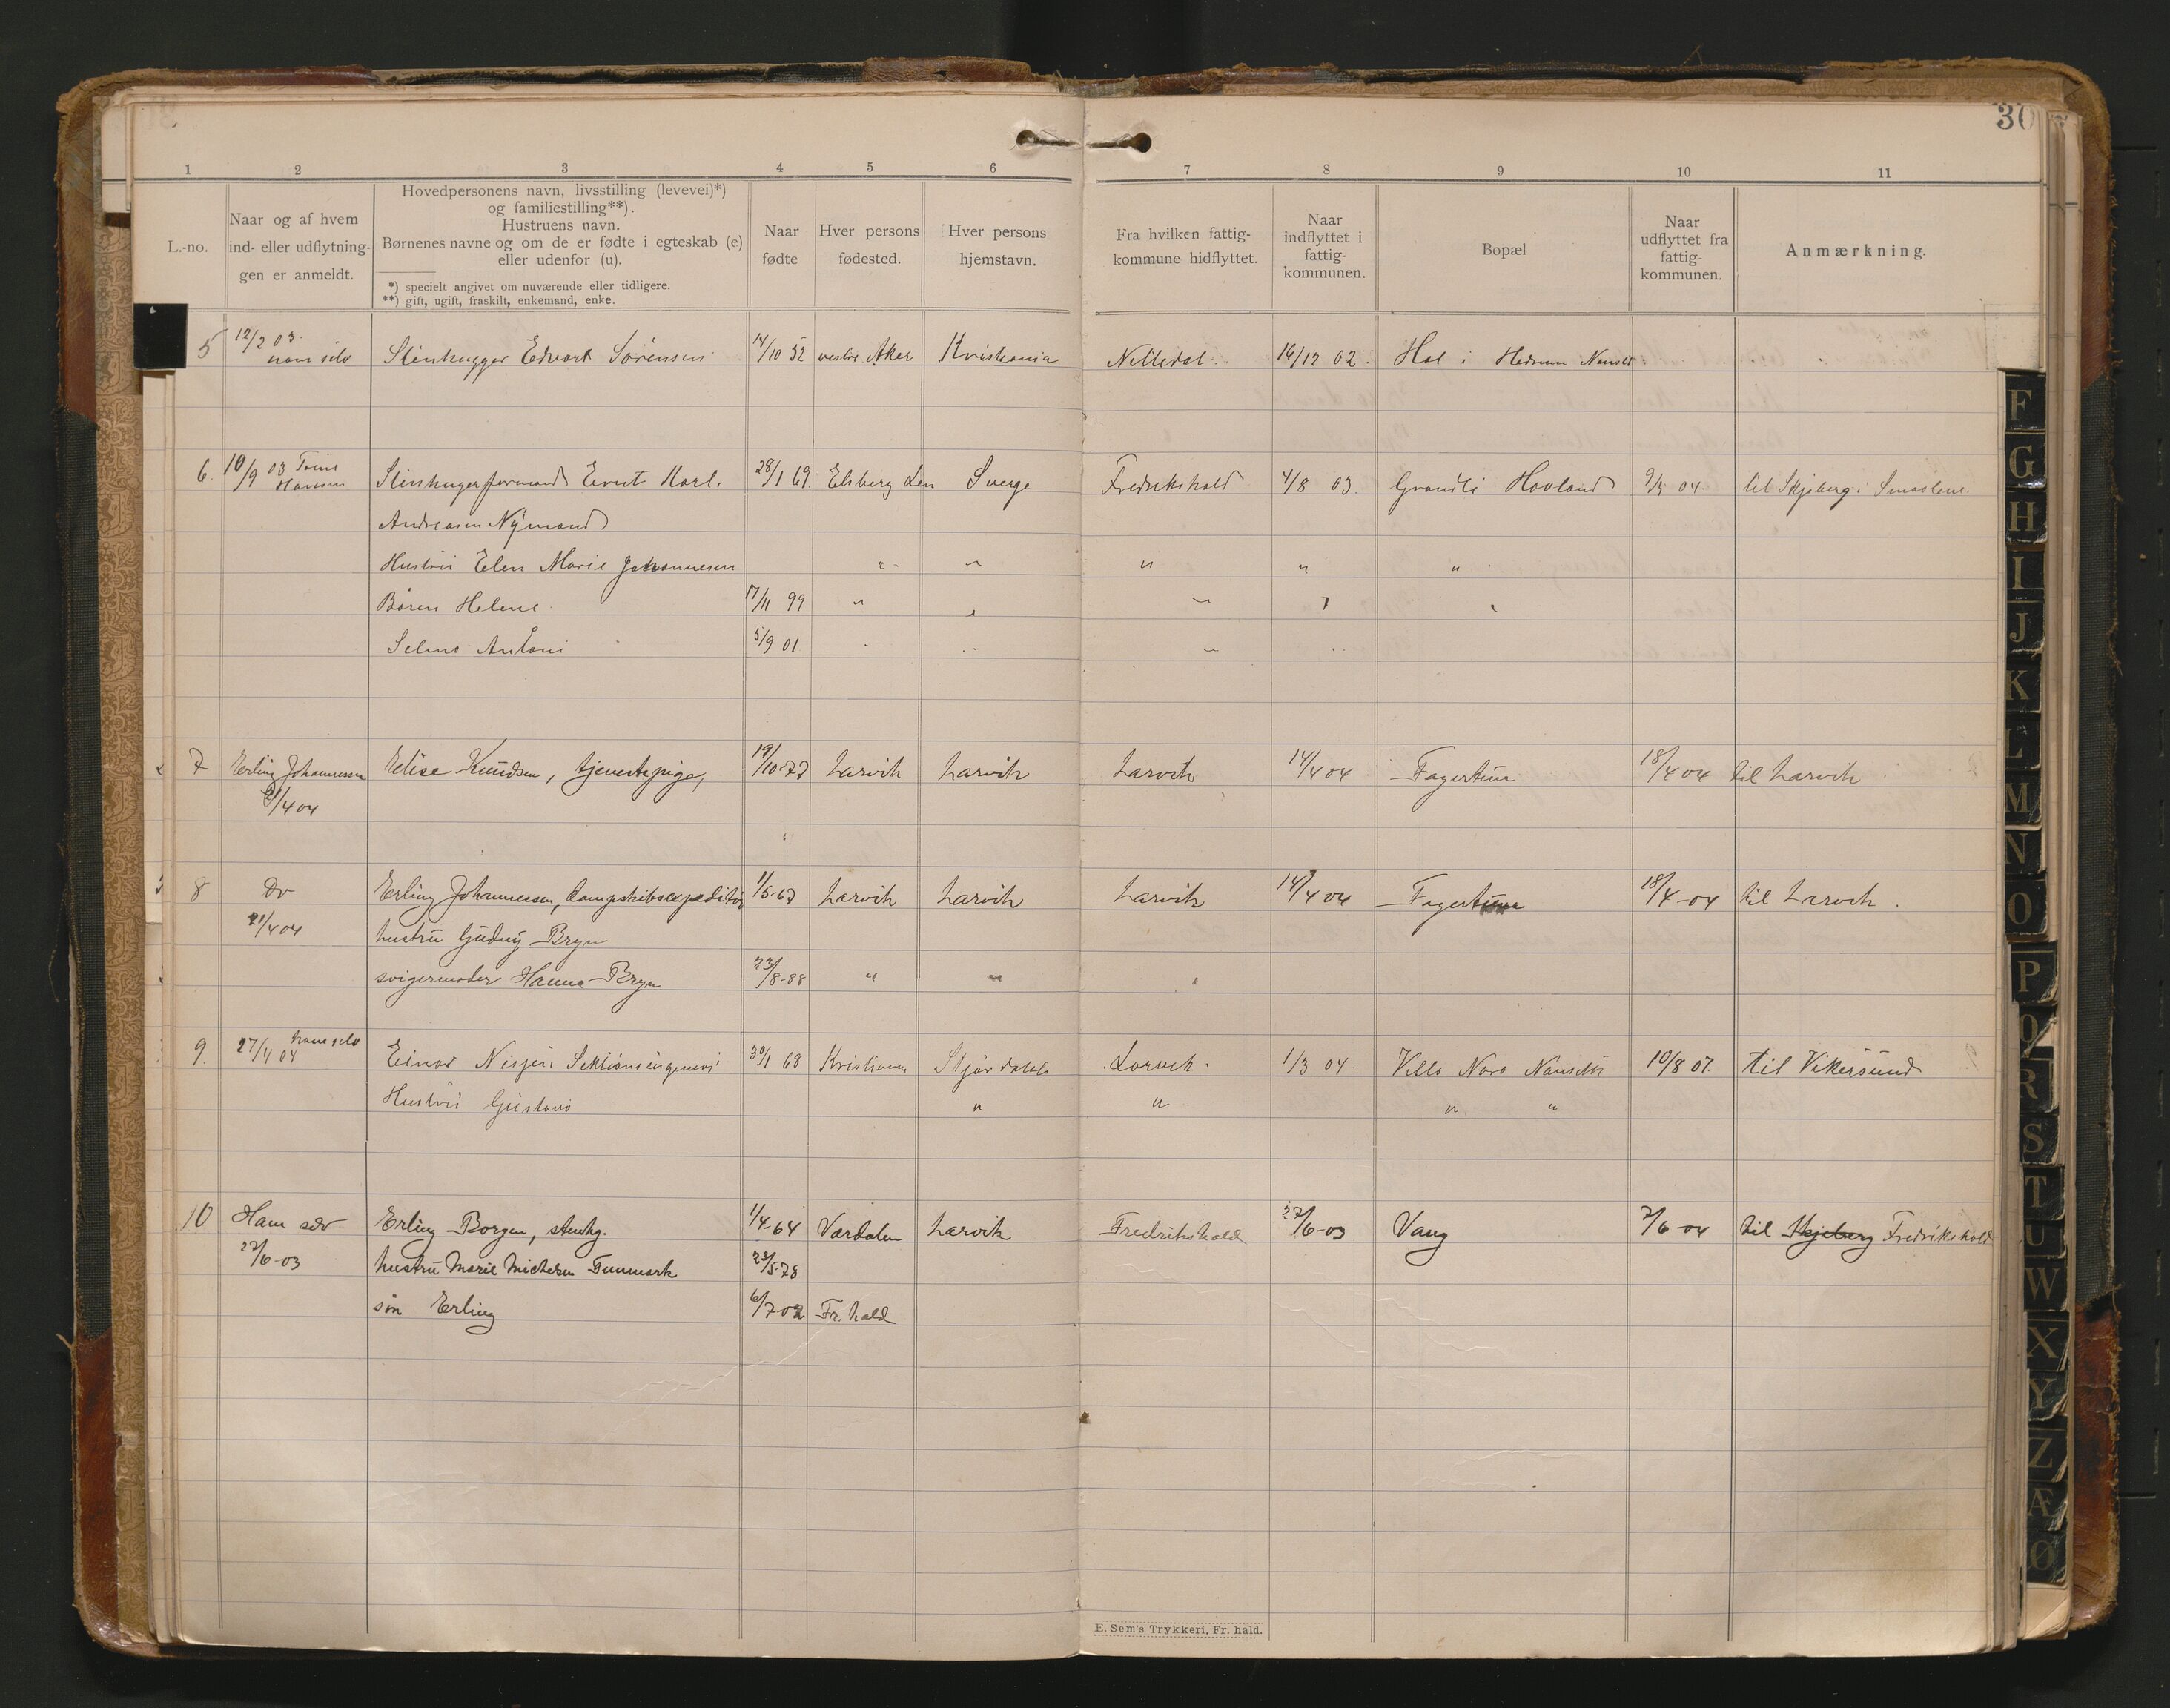 30
1 2 3 4 5 6 7 8 9 10 11
L.-no.
Naar og af hvem
ind- eller udflytnin-
gen er anmeldt.
Hovedpersonens navn, livsstilling (levevei)*)
og familiestilling**).
Hustruens navn.
Børnenes navne og om de er fødte i egteskab (e)
eller udenfor (u).
*) specielt angivet om nuværende eller tidligere.
**) gift, ugift, fraskilt, enkemand, enke.
Naar
fødte
Hver persons
fødested.
Hver persons
hjemstavn.
Fra hvilken fattig-
kommune hidflyttet.
Naar
indflyttet i
fattig-
kommunen.
Bopæl
Naar
udflyttet fra
fattig-
kommunen.
Anmærkning.
5 12/2 03 Stenhugger Edvart Sörensen 14/10 52 vestre Aker Kristiania Nittedal. 16/12 02. Hol i Hedrum Nanset
ham selv
6. 10/9 03 Hansen Stenhugerformand Ernt Karl. 28/1 69 Elsberg Len Sverge Fredrikshald 4/8 03. Grandli Hovland 9/5 04. til Skjeberg i Smaalene.
Andreasen Nÿmand
Hustrü Elen Marie Johannesen " " " " "
Børen Helene 17/11 99 " " " " "
Selma Antoni 5/9 01 " " " "
7 Erling Johannessen Elise Knudsen, tjenestepige, 19/10-73 Larvik Larvik Larvik 14/4 04 Fagertun 18/4 04 til Larvik
21/4 04
8 Do Erling Johannessen, dampskibsexpeditör 1/5-63 Larvik Larvik Larvik 14/4 04 Fagertun 18/4-04 til Larvik.
21/4 04 hustrü Gudny Bryn
svigermoder Hanna Bryn 23/8-88 " " "
9. 27/4 04 ham selv Einar Sektionsingeniør 30/1 68 Kristiania Stjørdalen Larvik. 1/3 04 Villa Nora Nanset 10/8 07. til Vikersund
Hustrü Güstava " " " "
10 Ham selv Erling Borgen, stenhg. 1/4-64 Værdalen Larvik Fredrikshald 27/6-03 Vang 7/6-04 til Skjeberg Fredrikshald
27/6-03 hustrü Marie Michelsen Funmark 23/5-78
sön Erling 6/7 02 Fr.hald
E. Sem's Trykkeri, Fr. hald.
F
G
H
I
J
K
L
M
N
O
P
Q
R
S
T
U
W
X
Y
Z
Æ
Ø